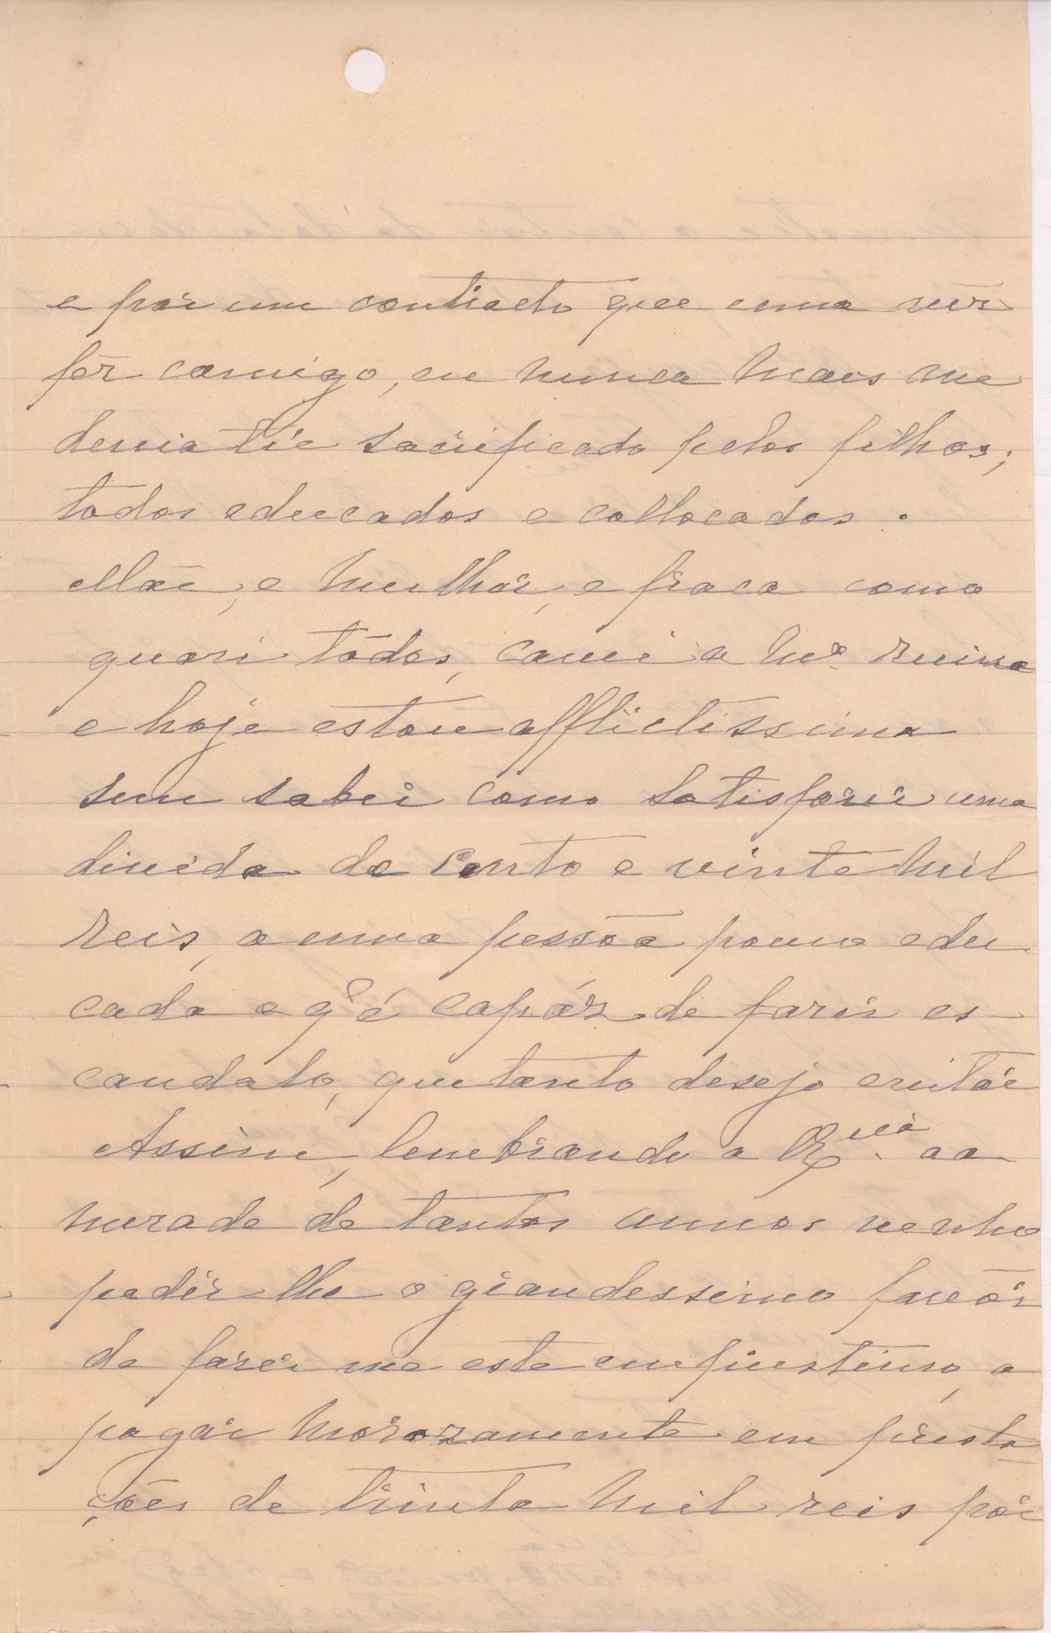 e por um contracto que uma vez
fez comigo, eu nunca mais me
devia têr sacrificado pelos filhos;
todos educados e collocados.
Mãe, e mulhér, e fraca como
quasi tôdas, cavei a mª ruina
e hoje estou afflictissima
sem saber como satisfazer uma
divida de cento e vinte mil
reis, a uma pessôa pouco edu
cada e q̃ é capáz de fazer es-
candalo, que tanto desejo evitár
Assim, lembrando a Exª. a a
mizade de tantos annos venho
pedir-lhe o grandessimo favôr
de fazer me este emprestimo, a
pagár morozamente em presta
ções de trinta mil reis pôr